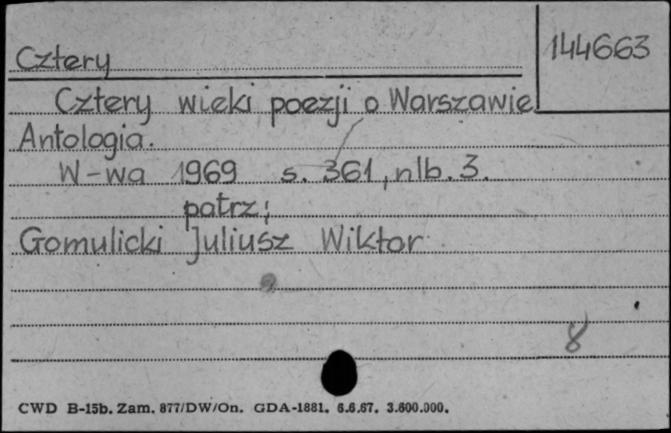 Cztery
144663
Cztery wieki poezji o Warszawie
Antologia.
W-wa 1969 s. 361, nlb. 3.
patrz;
Gomulicki Juliusz Wiktor
8
CWD B-15b. Zam. 877/DW/On. GDA-1881. 6.6.67. 3.600.000.